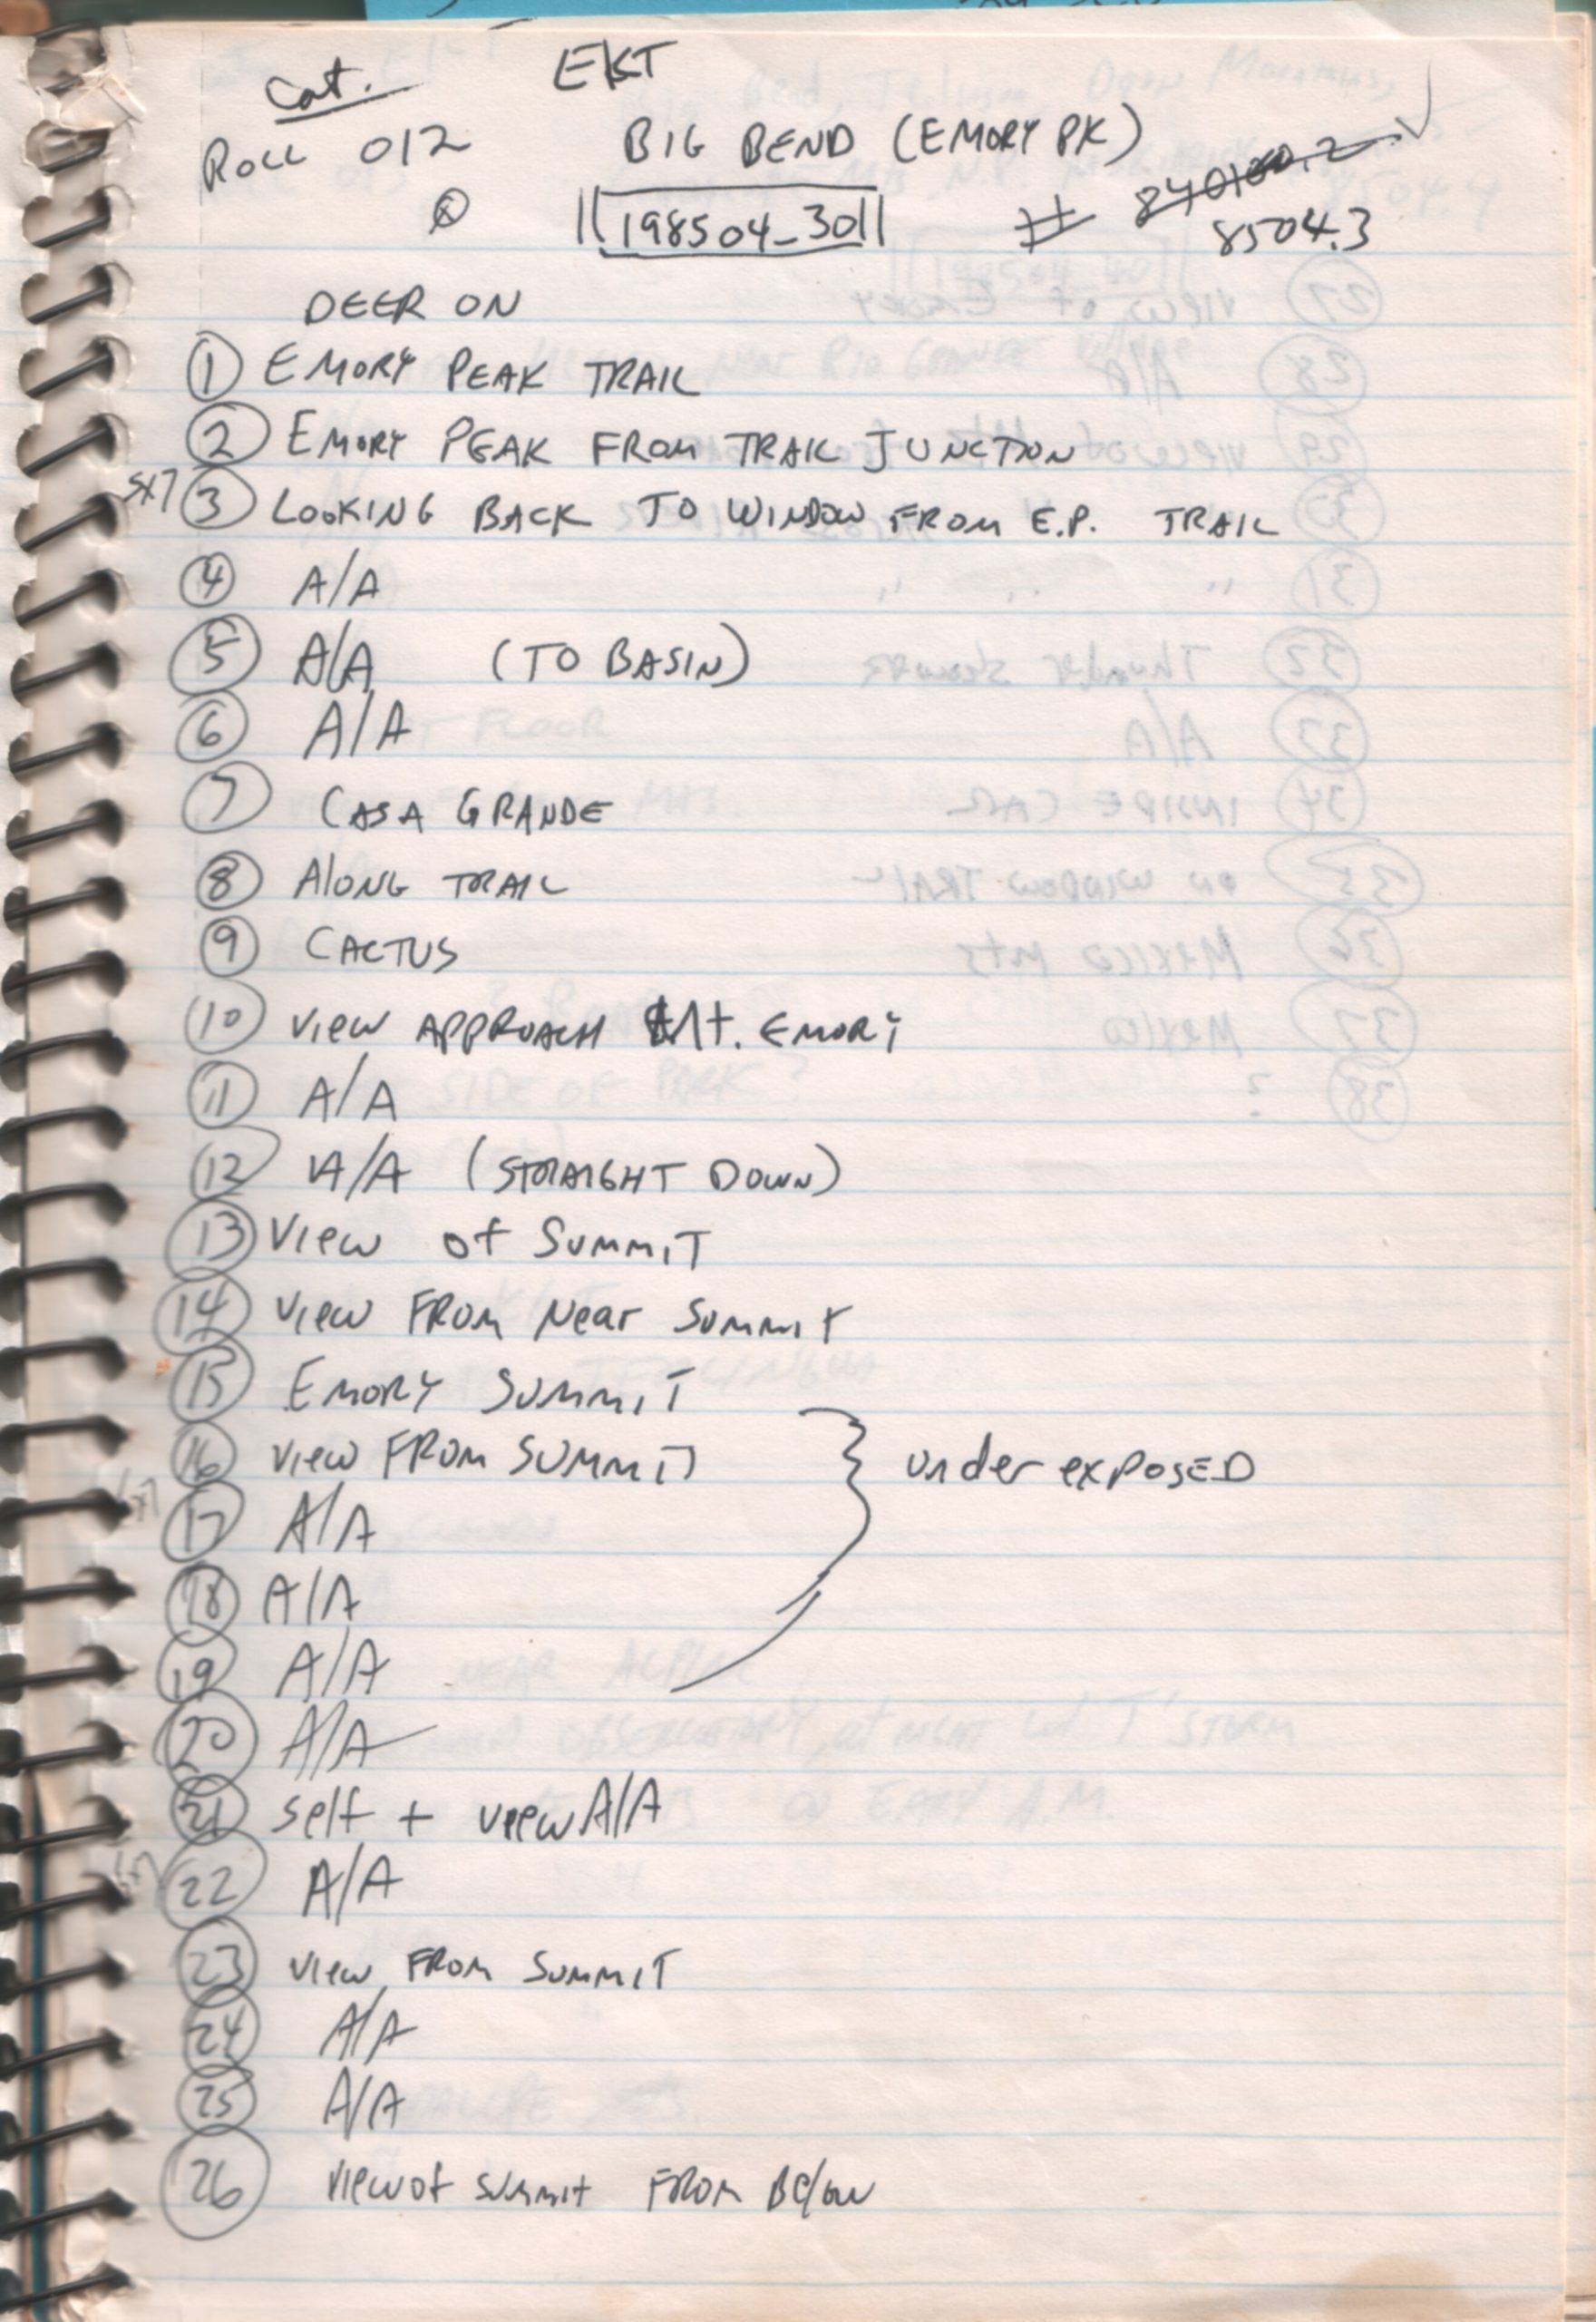 Cat. EKT
ROLL 012 BIG BEND (EMORY PK)
198504_30 # 8504.3
DEER ON
1 EMORY PEAK TRAIL
2 EMORY PEAK FROM TRAIL JUNCTION
5x7 3 LOOKING BACK TO WINDOW FROM E.P. TRAIL
4 A/A
5 A/A (TO BASIN)
6 A/A
7 CASA GRANDE
8 Along TRAIL
9 CACTUS
10 View APPROACH Mt. EMORY
11 A/A
12 A/A (STRAIGHT DOWN)
13 View of SUMMIT
14 View FROM Near SUMMIT
15 EMORY SUMMIT
16 View FROM SUMMIT } under exposED
17 A/A
18 A/A
19 A/A
20 A/A
21 self + view A/A
22 A/A
23 View FROM SUMMIT
24 A/A
25 A/A
26 View of summit FROM Below